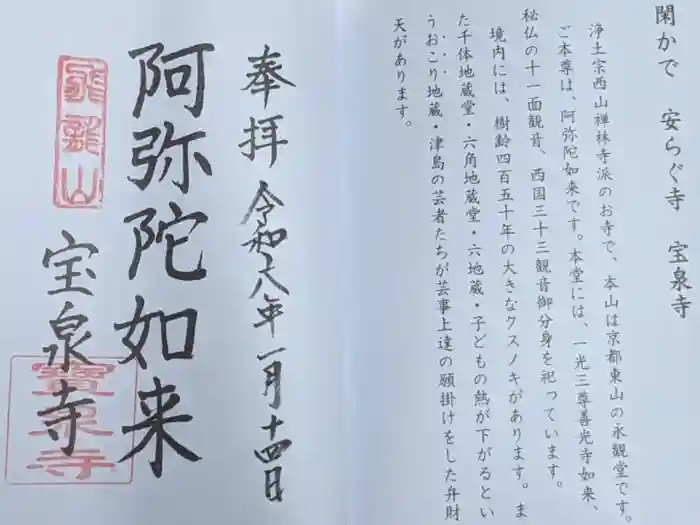 閑かで　安らぐ寺　宝泉寺
浄土宗西山禅林寺派のお寺で、本山は京都東山の永観堂です。
ご本尊は、阿弥陀如来です。本堂には、一光三尊善光寺如来、
秘仏の十一面観音、西国三十三観音御分身を祀っています。
境内には、樹齢四百五十年の大きなクスノキがあります。ま
た千体地蔵堂・六角地蔵堂・六地蔵・子どもの熱が下がるとい
うおこり地蔵・津島の芸者たちが芸事上達の願掛けをした弁財
天があります。
奉拝 令和六年一月十四日
阿弥陀如来
宝泉寺
寶泉寺